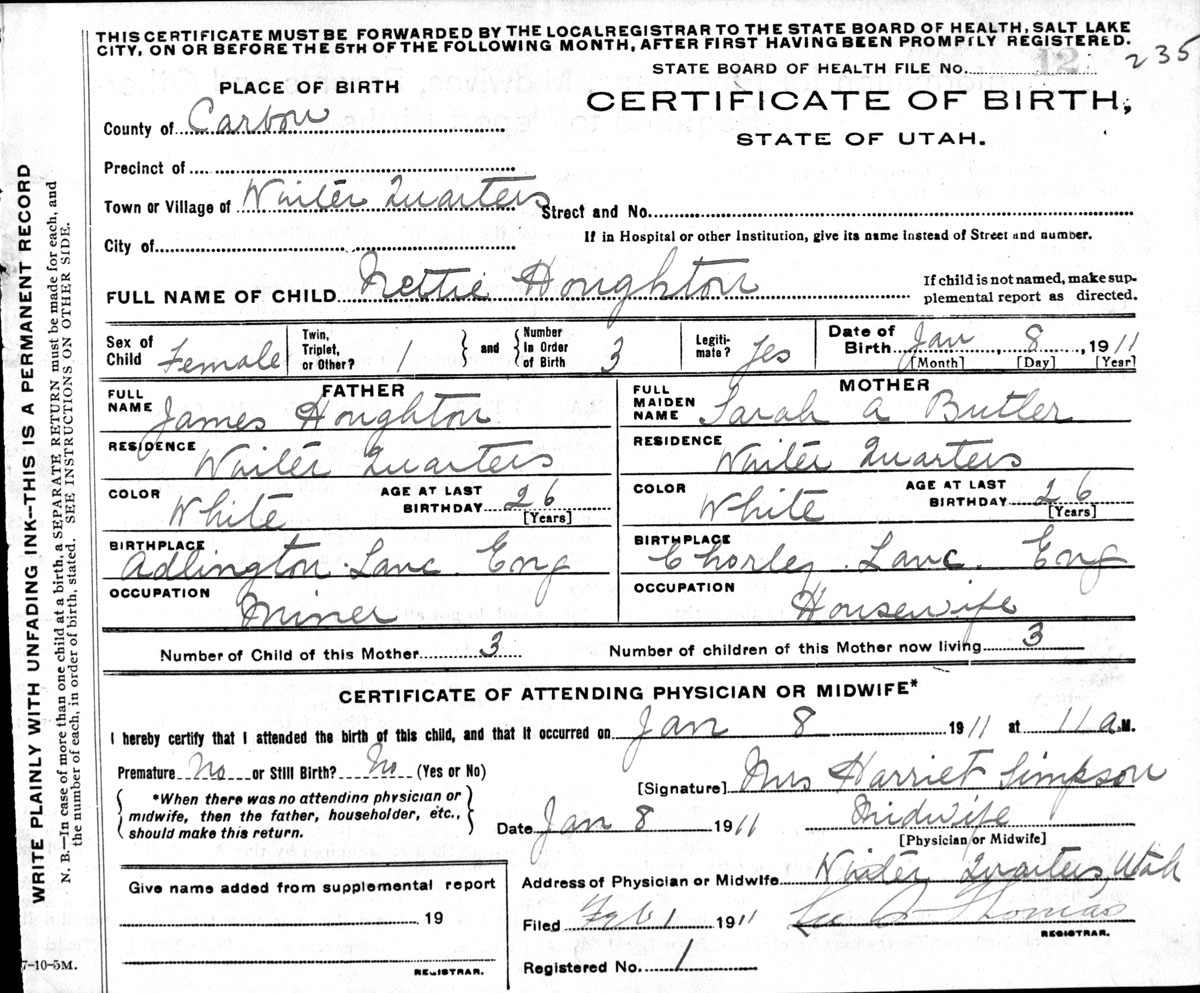 THIS CERTIFICATE MUST BE FORWARDED BY THE LOCAL REGISTRAR TO THE STATE BOARD OF HEALTH, SALT LAKE
CITY, ON OR BEFORE THE 5TH OF THE FOLLOWING MONTH, AFTER FIRST HAVING BEEN PROMPTLY REGISTERED.
STATE BOARD OF HEALTH FILE No. 12 235
PLACE OF BIRTH
CERTIFICATE OF BIRTH,
STATE OF UTAH.
County of Carbon
Precinct of
Town or Village of Winter Quarters Street and No.
City of If in Hospital or other Institution, give its name instead of Street and number.
FULL NAME OF CHILD Nettie Houghton If child is not named, make sup-
plemental report as directed.
Sex of Child Female Twin, Triplet, or Other? 1 and Number In Order of Birth 3 Legiti-mate? Yes Date of Birth Jan 8, 1911
[Month] [Day] [Year]
FATHER MOTHER
FULL NAME James Houghton FULL MAIDEN NAME Sarah A Butler
RESIDENCE Winter Quarters RESIDENCE Winter Quarters
COLOR White AGE AT LAST BIRTHDAY 26 [Years] COLOR White AGE AT LAST BIRTHDAY 26 [Years]
BIRTHPLACE Adlington Lanc. Eng BIRTHPLACE Chorley Lanc. Eng
OCCUPATION Miner OCCUPATION Housewife
Number of Child of this Mother 3 Number of children of this Mother now living 3
CERTIFICATE OF ATTENDING PHYSICIAN OR MIDWIFE*
I hereby certify that I attended the birth of this child, and that it occurred on Jan 8 1911 at 11 a.M.
Premature No or Still Birth? No (Yes or No)
[Signature] Mrs Harriet Simpson
*When there was no attending physician or
midwife, then the father, householder, etc.,
should make this return.
Date Jan 8 1911 Midwife
[Physician or Midwife]
Give name added from supplemental report
19
REGISTRAR.
Address of Physician or Midwife Winter Quarters, Utah
Filed Feb 1 1911 Thomas
REGISTRAR.
Registered No. 1
7-10-5M.
WRITE PLAINLY WITH UNFADING INK--THIS IS A PERMANENT RECORD
N. B.—In case of more than one child at a birth, a SEPARATE RETURN must be made for each, and
the number of each, in order of birth, stated. SEE INSTRUCTIONS ON OTHER SIDE.